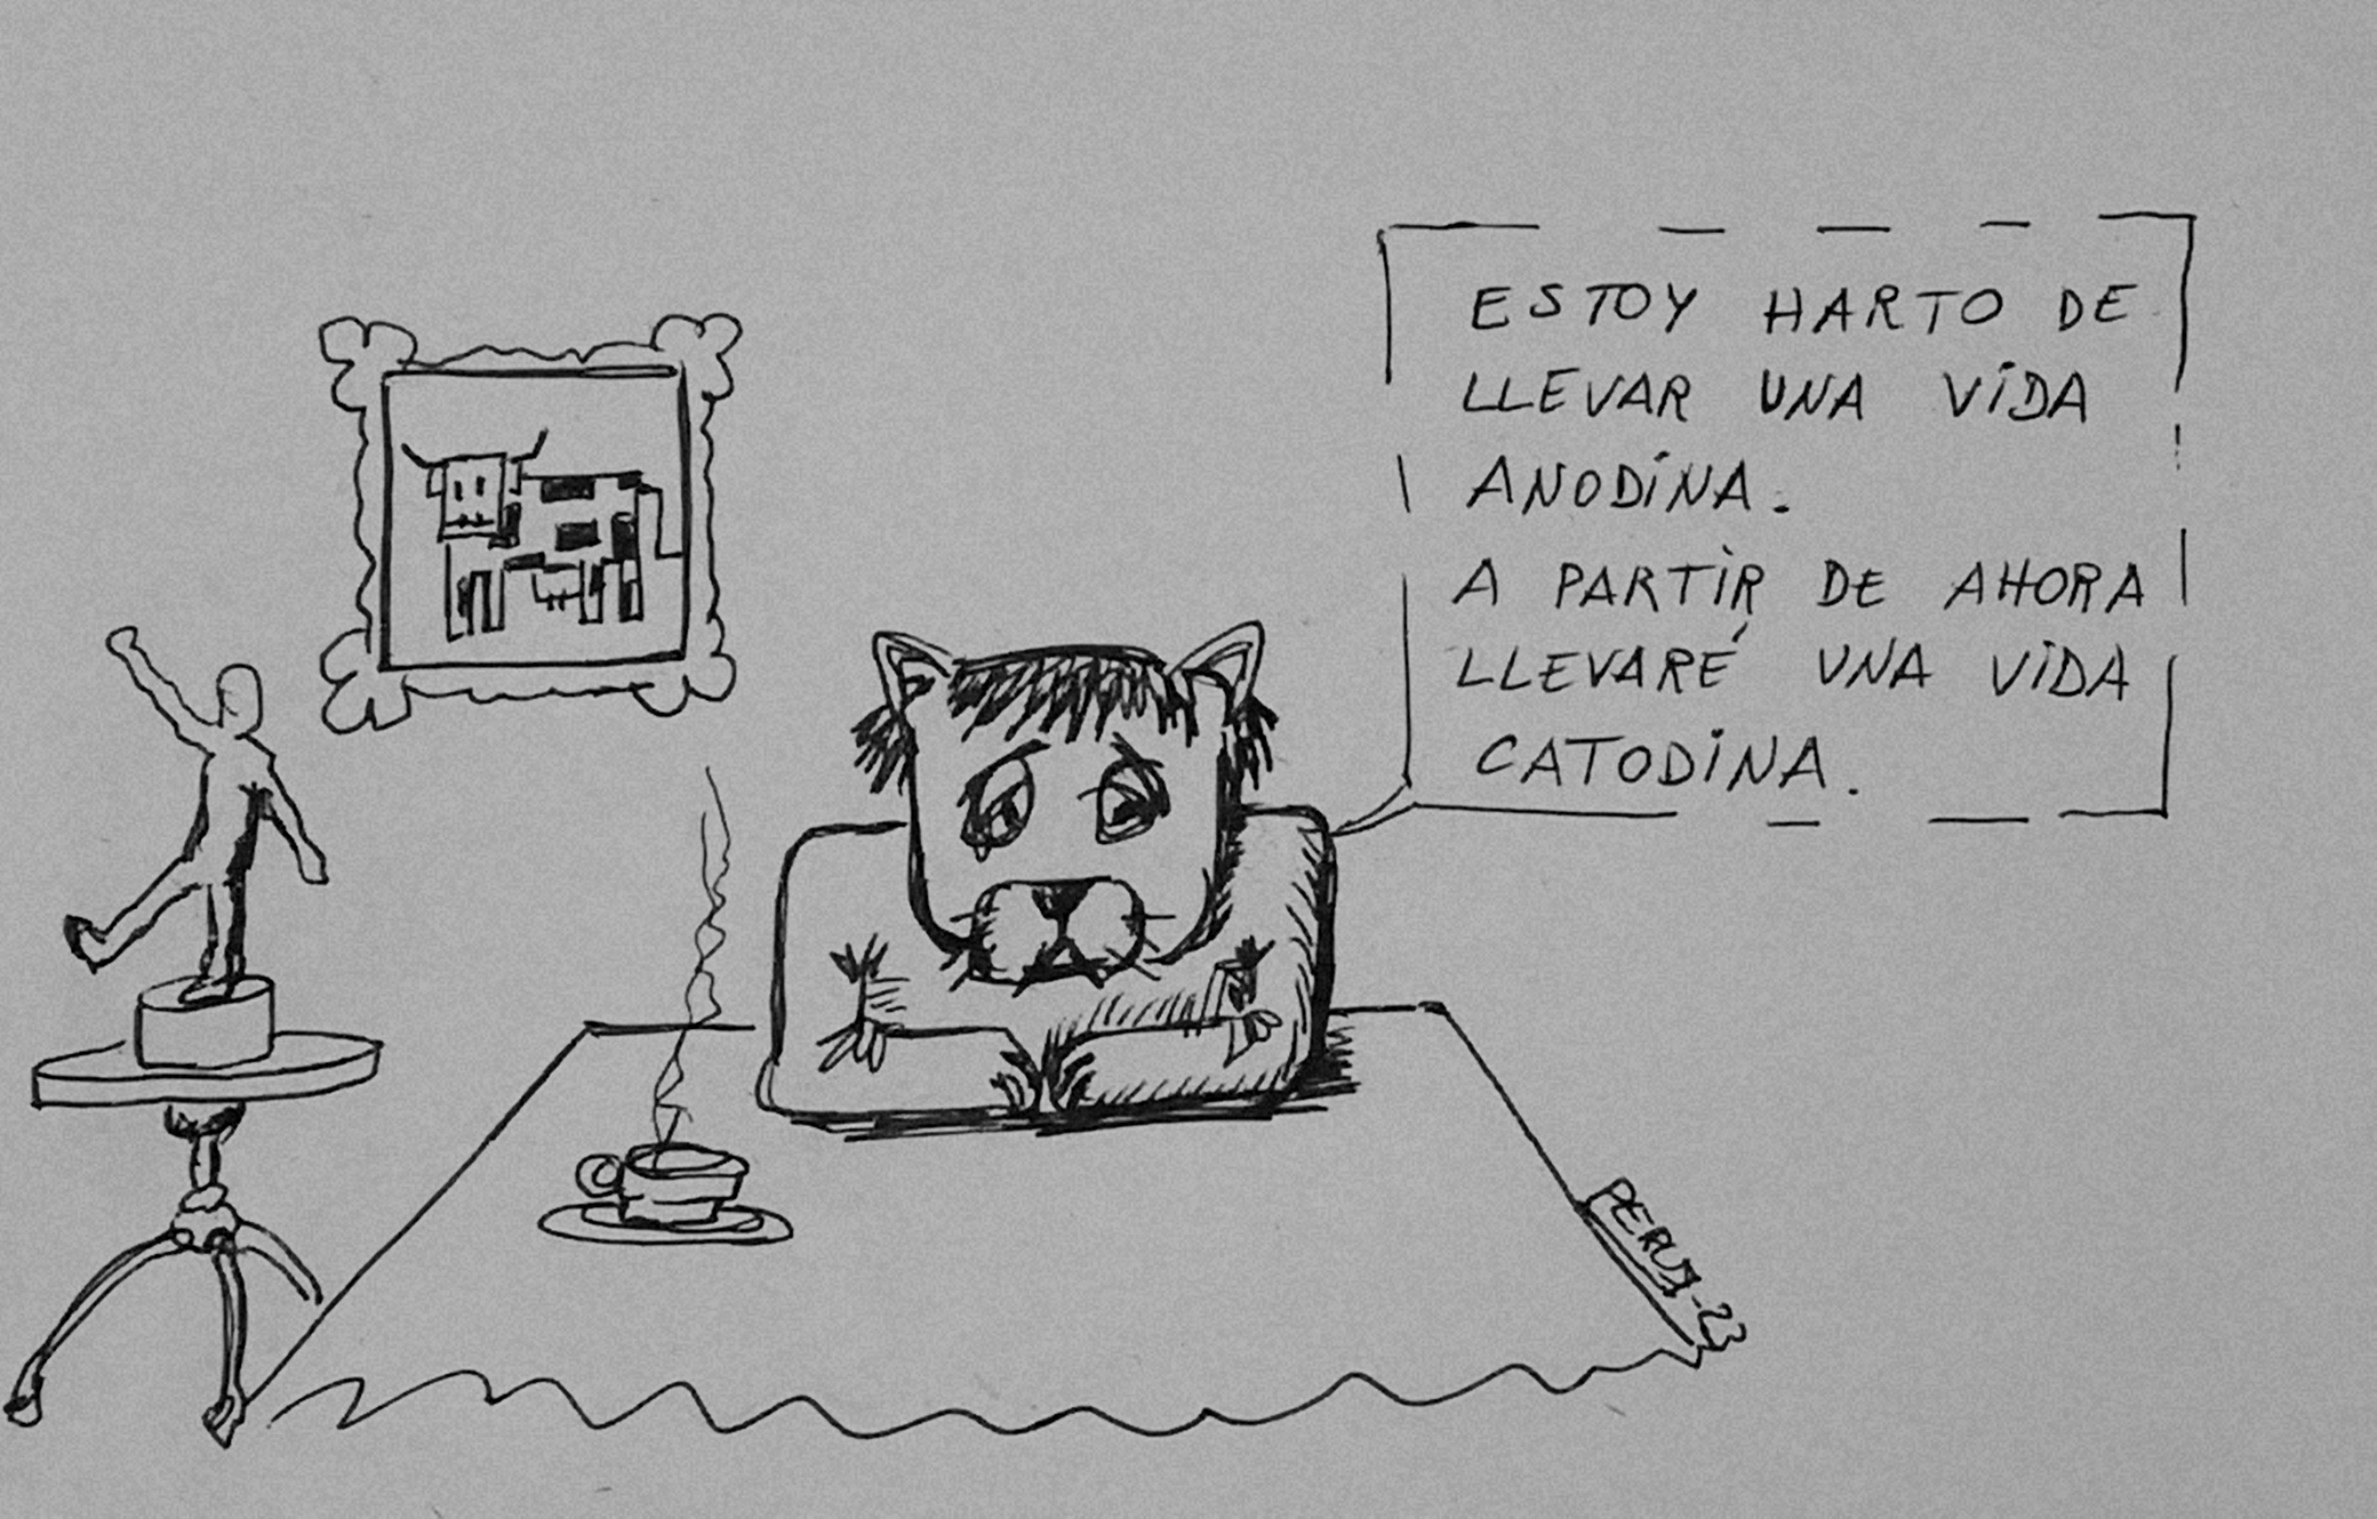 ESTOY HARTO DE
LLEVAR UNA VIDA
ANODINA.
A PARTIR DE AHORA
LLEVARÉ UNA VIDA
CATODINA.